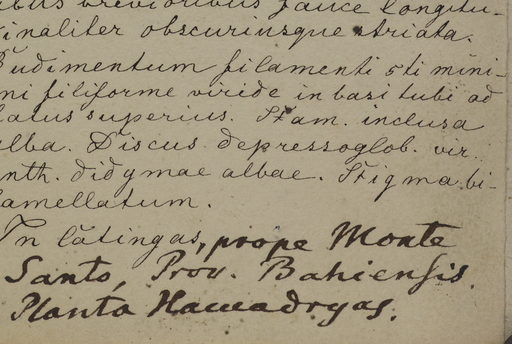 ibus brevioribus fauce longitu-
dinaliter obscuriusque striata.
Rudimentum filamenti 5ti mini-
mi filiforme viride in basi tubi ad
latus superius. Stam. inclusa
alba. Discus depressoglob. vir.
Anth. didymae albae. Stigma bi-
lamellatum.
In Catingas, prope Monte
Santo, Prov. Bahiensis.
Planta Hamadryas.